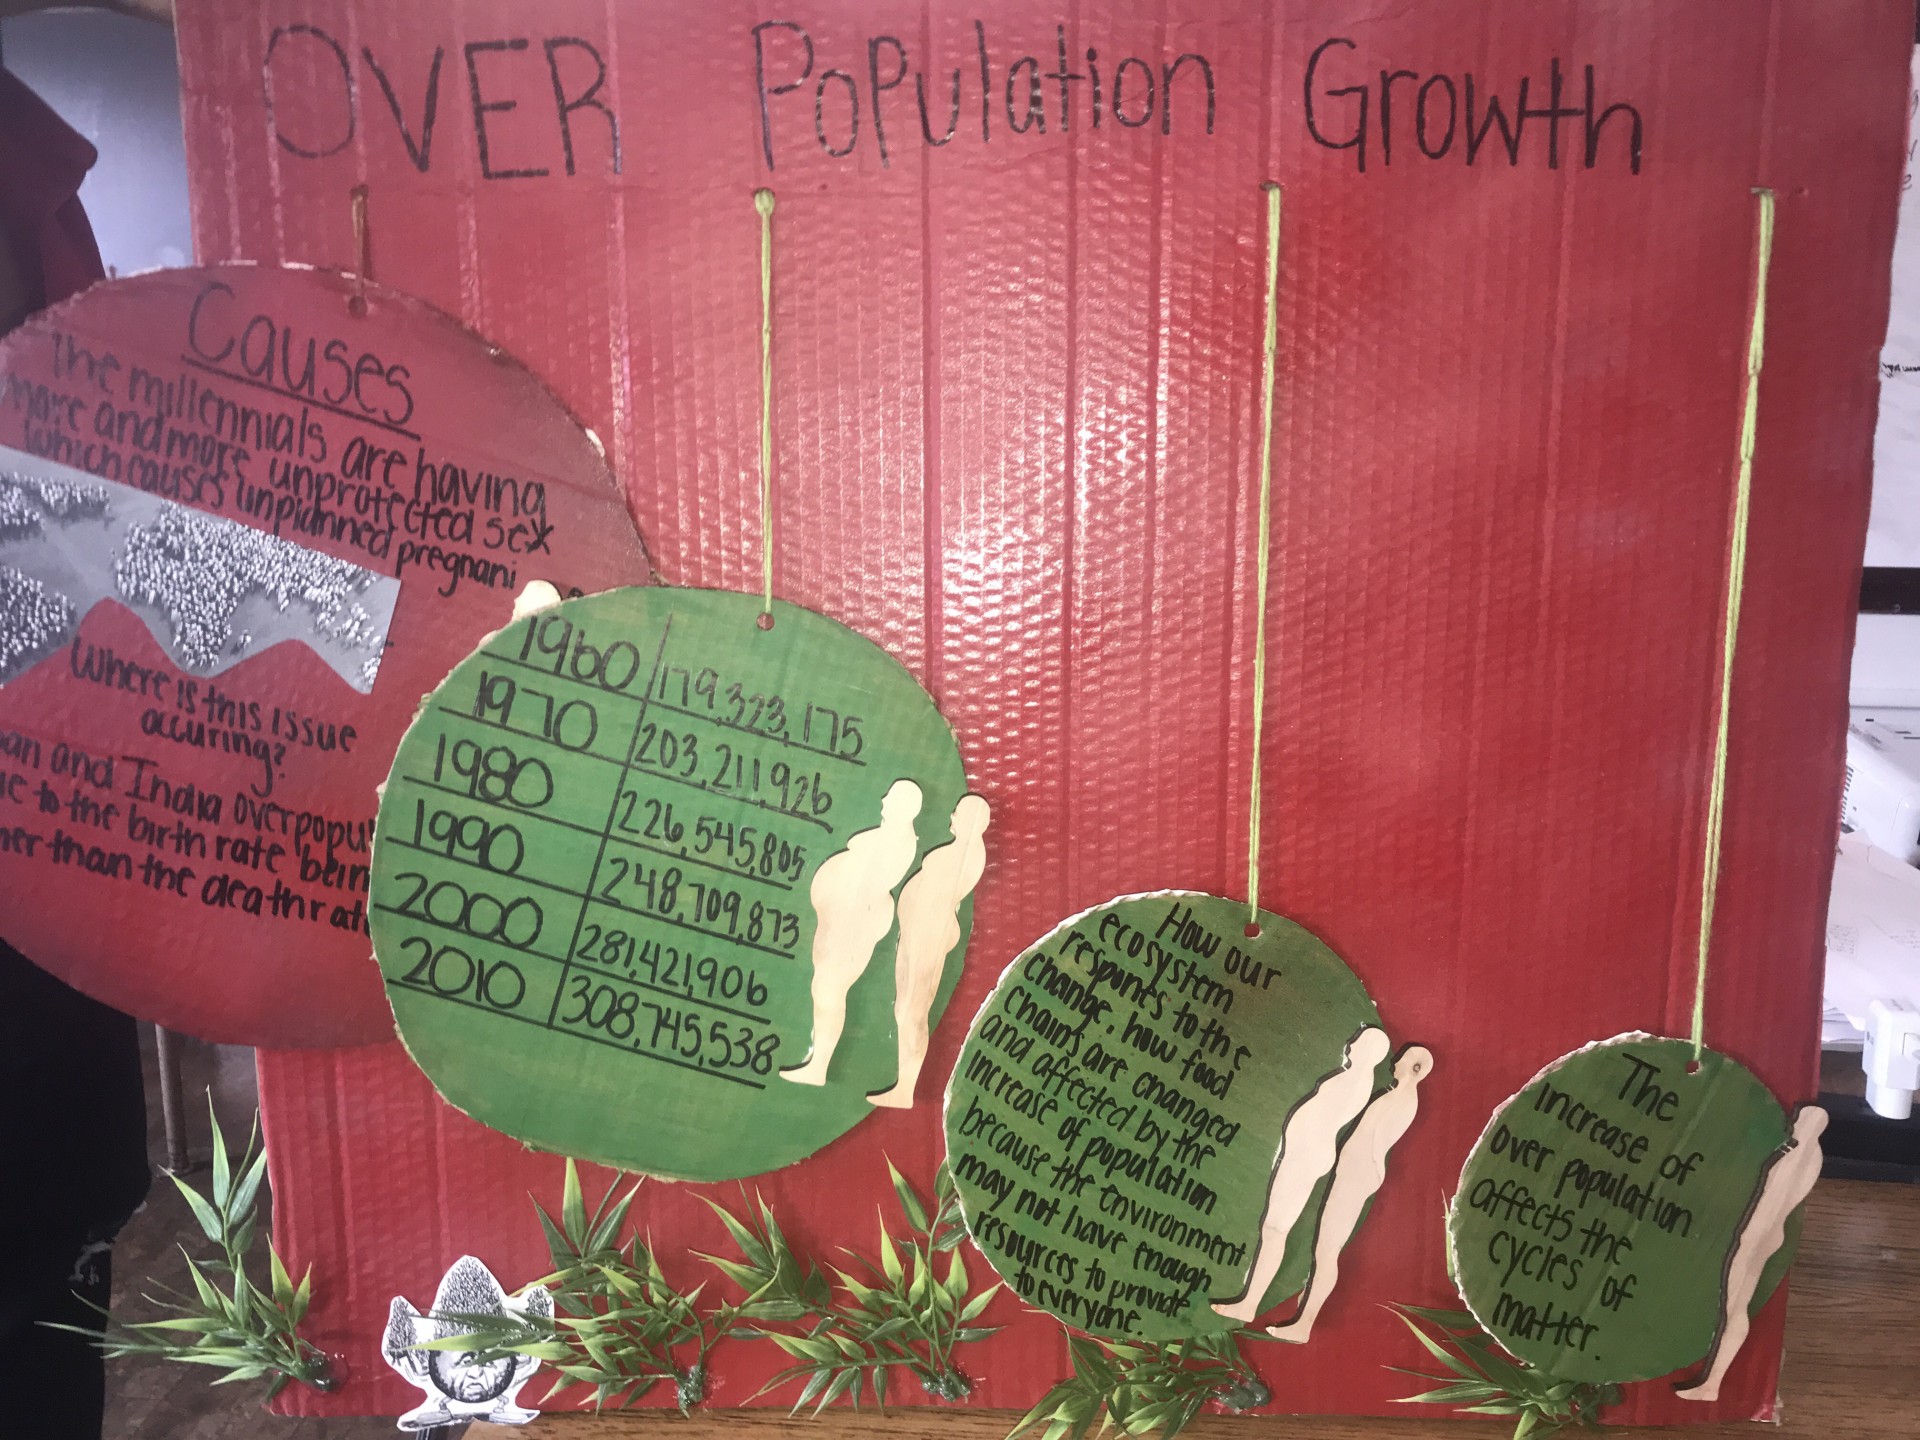 OVER Population Growth
Causes
The millennials are having
more and more unprotected sex
which causes unplanned pregnani
Where is this issue
accuring?
an and India overpopu
e to the birth rate bein
her than the death rat
1960 179,323,175
1970 203,211,926
1980 226,545,805
1990 248,709,873
2000 281,421,906
2010 308,745,538
How our
ecosystem
responts to the
change, how food
chains are changed
and affected by the
increase of population
because the environment
may not have enough
resources to provide
to everyone.
The
increase of
over population
affects the
cycles of
matter.